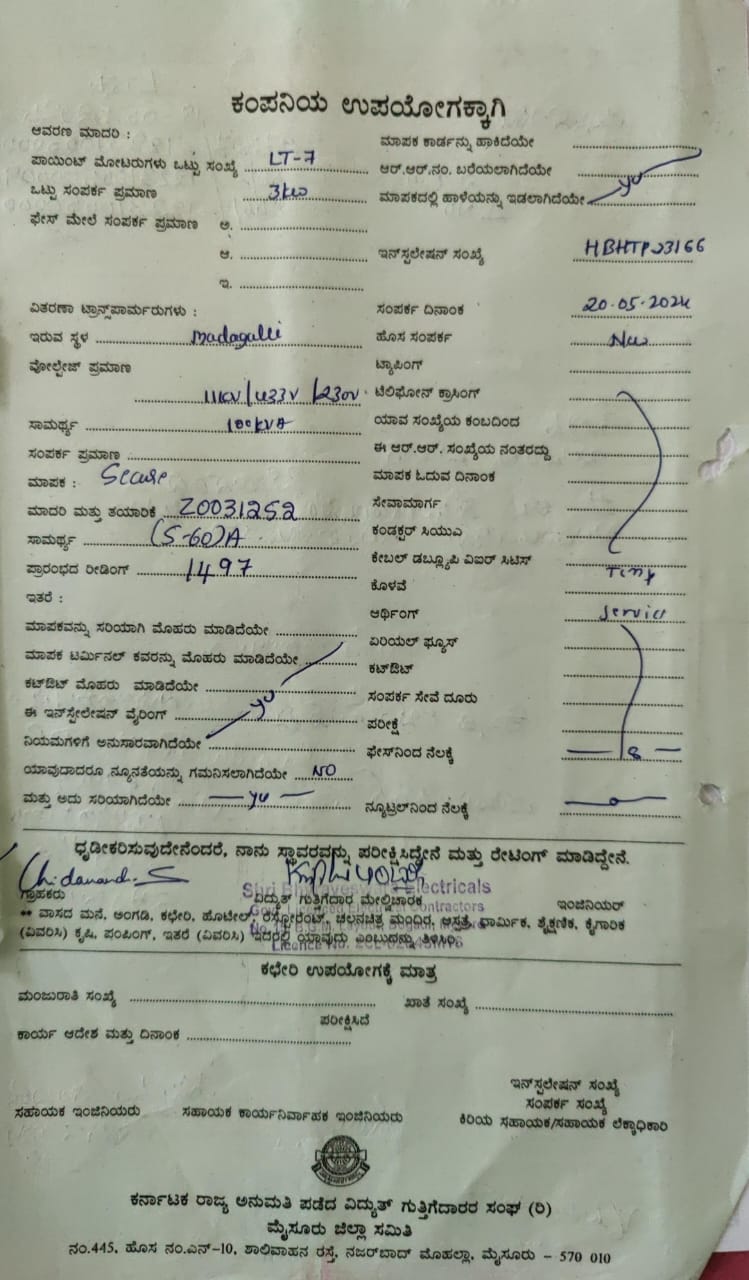 ಕಂಪನಿಯ ಉಪಯೋಗಕ್ಕಾಗಿ
ಆವರಣ ಮಾದರಿ :
ಪಾಯಿಂಟ್ ಮೋಟರುಗಳು ಒಟ್ಟು ಸಂಖ್ಯೆ LT-7
ಒಟ್ಟು ಸಂಪರ್ಕ ಪ್ರಮಾಣ 3kw
ಫೇಸ್ ಮೇಲೆ ಸಂಪರ್ಕ ಪ್ರಮಾಣ ಅ.
ಆ.
ಇ.
ವಿತರಣಾ ಟ್ರಾನ್ಸ್‌ಪಾರ್ಮರುಗಳು :
ಇರುವ ಸ್ಥಳ Madagalli
ವೋಲ್ಟೇಜ್ ಪ್ರಮಾಣ
11KV/433V/230V
ಸಾಮರ್ಥ್ಯ 100KVA
ಸಂಪರ್ಕ ಪ್ರಮಾಣ
ಮಾಪಕ : Secure
ಮಾದರಿ ಮತ್ತು ತಯಾರಿಕೆ Z0031252
ಸಾಮರ್ಥ್ಯ (5-60)A
ಪ್ರಾರಂಭದ ರೀಡಿಂಗ್ 1497
ಇತರೆ :
ಮಾಪಕವನ್ನು ಸರಿಯಾಗಿ ಮೊಹರು ಮಾಡಿದೆಯೇ
ಮಾಪಕ ಟರ್ಮಿನಲ್ ಕವರನ್ನು ಮೊಹರು ಮಾಡಿದೆಯೇ
ಕಟ್‌ಔಟ್ ಮೊಹರು ಮಾಡಿದೆಯೇ
ಈ ಇನ್‌ಸ್ಟೇಲೇಷನ್ ವೈರಿಂಗ್ yes
ನಿಯಮಗಳಿಗೆ ಅನುಸಾರವಾಗಿದೆಯೇ
ಯಾವುದಾದರೂ ನ್ಯೂನತೆಯನ್ನು ಗಮನಿಸಲಾಗಿದೆಯೇ NO
ಮತ್ತು ಅದು ಸರಿಯಾಗಿದೆಯೇ — yes —
ಮಾಪಕ ಕಾರ್ಡನ್ನು ಹಾಕಿದೆಯೇ
ಆರ್.ಆರ್.ನಂ. ಬರೆಯಲಾಗಿದೆಯೇ
ಮಾಪಕದಲ್ಲಿ ಹಾಳೆಯನ್ನು ಇಡಲಾಗಿದೆಯೇ yes
ಇನ್‌ಸ್ಟಲೇಷನ್ ಸಂಖ್ಯೆ HBHTP23166
ಸಂಪರ್ಕ ದಿನಾಂಕ 20.05.2024
ಹೊಸ ಸಂಪರ್ಕ New
ಟ್ಯಾಪಿಂಗ್
ಟೆಲಿಫೋನ್ ಕ್ರಾಸಿಂಗ್
ಯಾವ ಸಂಖ್ಯೆಯ ಕಂಬದಿಂದ
ಈ ಆರ್.ಆರ್. ಸಂಖ್ಯೆಯ ನಂತರದ್ದು
ಮಾಪಕ ಓದುವ ದಿನಾಂಕ
ಸೇವಾಮಾರ್ಗ
ಕಂಡಕ್ಟರ್ ಸಿಯುಎ
ಕೇಬಲ್ ಡಬ್ಲ್ಯೂಪಿ ವಿಐರ್ ಸಿಟಿಸ್
ಕೊಳವೆ Temp
ಆರ್ಥಿಂಗ್ Service
ಏರಿಯಲ್ ಫ್ಯೂಸ್
ಕಟ್‌ಔಟ್
ಸಂಪರ್ಕ ಸೇವೆ ದೂರು
ಪರೀಕ್ಷೆ
ಫೇಸ್‌ನಿಂದ ನೆಲಕ್ಕೆ — 8 —
ನ್ಯೂಟ್ರಲ್‌ನಿಂದ ನೆಲಕ್ಕೆ — 0 —
ಧೃಡೀಕರಿಸುವುದೇನೆಂದರೆ, ನಾನು ಸ್ಥಾವರವನ್ನು ಪರೀಕ್ಷಿಸಿದ್ದೇನೆ ಮತ್ತು ರೇಟಿಂಗ್ ಮಾಡಿದ್ದೇನೆ.
Chidanand.S
ಗ್ರಾಹಕರು ವಿದ್ಯುತ್ ಗುತ್ತಿಗೆದಾರ ಮೇಲ್ವಿಚಾರಕ ಇಂಜಿನಿಯರ್
Shri Electricals
** ವಾಸದ ಮನೆ, ಅಂಗಡಿ, ಕಛೇರಿ, ಹೊಟೇಲ್, ರೆಸ್ಟೋರೆಂಟ್, ಚಲನಚಿತ್ರ ಮಂದಿರ, ಆಸ್ಪತ್ರೆ, ಧಾರ್ಮಿಕ, ಶೈಕ್ಷಣಿಕ, ಕೈಗಾರಿಕ
Contractors
(ವಿವರಿಸಿ) ಕೃಷಿ, ಪಂಪಿಂಗ್, ಇತರೆ (ವಿವರಿಸಿ) ಇದರಲ್ಲಿ ಯಾವುದು ಎಂಬುದನ್ನು ತಿಳಿಸಿರಿ.
Licence No.
ಕಛೇರಿ ಉಪಯೋಗಕ್ಕೆ ಮಾತ್ರ
ಮಂಜುರಾತಿ ಸಂಖ್ಯೆ ಖಾತೆ ಸಂಖ್ಯೆ
ಪರೀಕ್ಷಿಸಿದೆ
ಕಾರ್ಯ ಆದೇಶ ಮತ್ತು ದಿನಾಂಕ
ಇನ್‌ಸ್ಟಲೇಷನ್ ಸಂಖ್ಯೆ
ಸಂಪರ್ಕ ಸಂಖ್ಯೆ
ಸಹಾಯಕ ಇಂಜಿನಿಯರು ಸಹಾಯಕ ಕಾರ್ಯನಿರ್ವಾಹಕ ಇಂಜಿನಿಯರು ಕಿರಿಯ ಸಹಾಯಕ/ಸಹಾಯಕ ಲೆಕ್ಕಾಧಿಕಾರಿ
ಕರ್ನಾಟಕ ರಾಜ್ಯ ಅನುಮತಿ ಪಡೆದ ವಿದ್ಯುತ್ ಗುತ್ತಿಗೆದಾರರ ಸಂಘ (ರಿ)
ಮೈಸೂರು ಜಿಲ್ಲಾ ಸಮಿತಿ
ನಂ.445, ಹೊಸ ನಂ.ಎನ್-10, ಶಾಲಿವಾಹನ ರಸ್ತೆ, ನಜರ್‌ಬಾದ್ ಮೊಹಲ್ಲಾ, ಮೈಸೂರು - 570 010